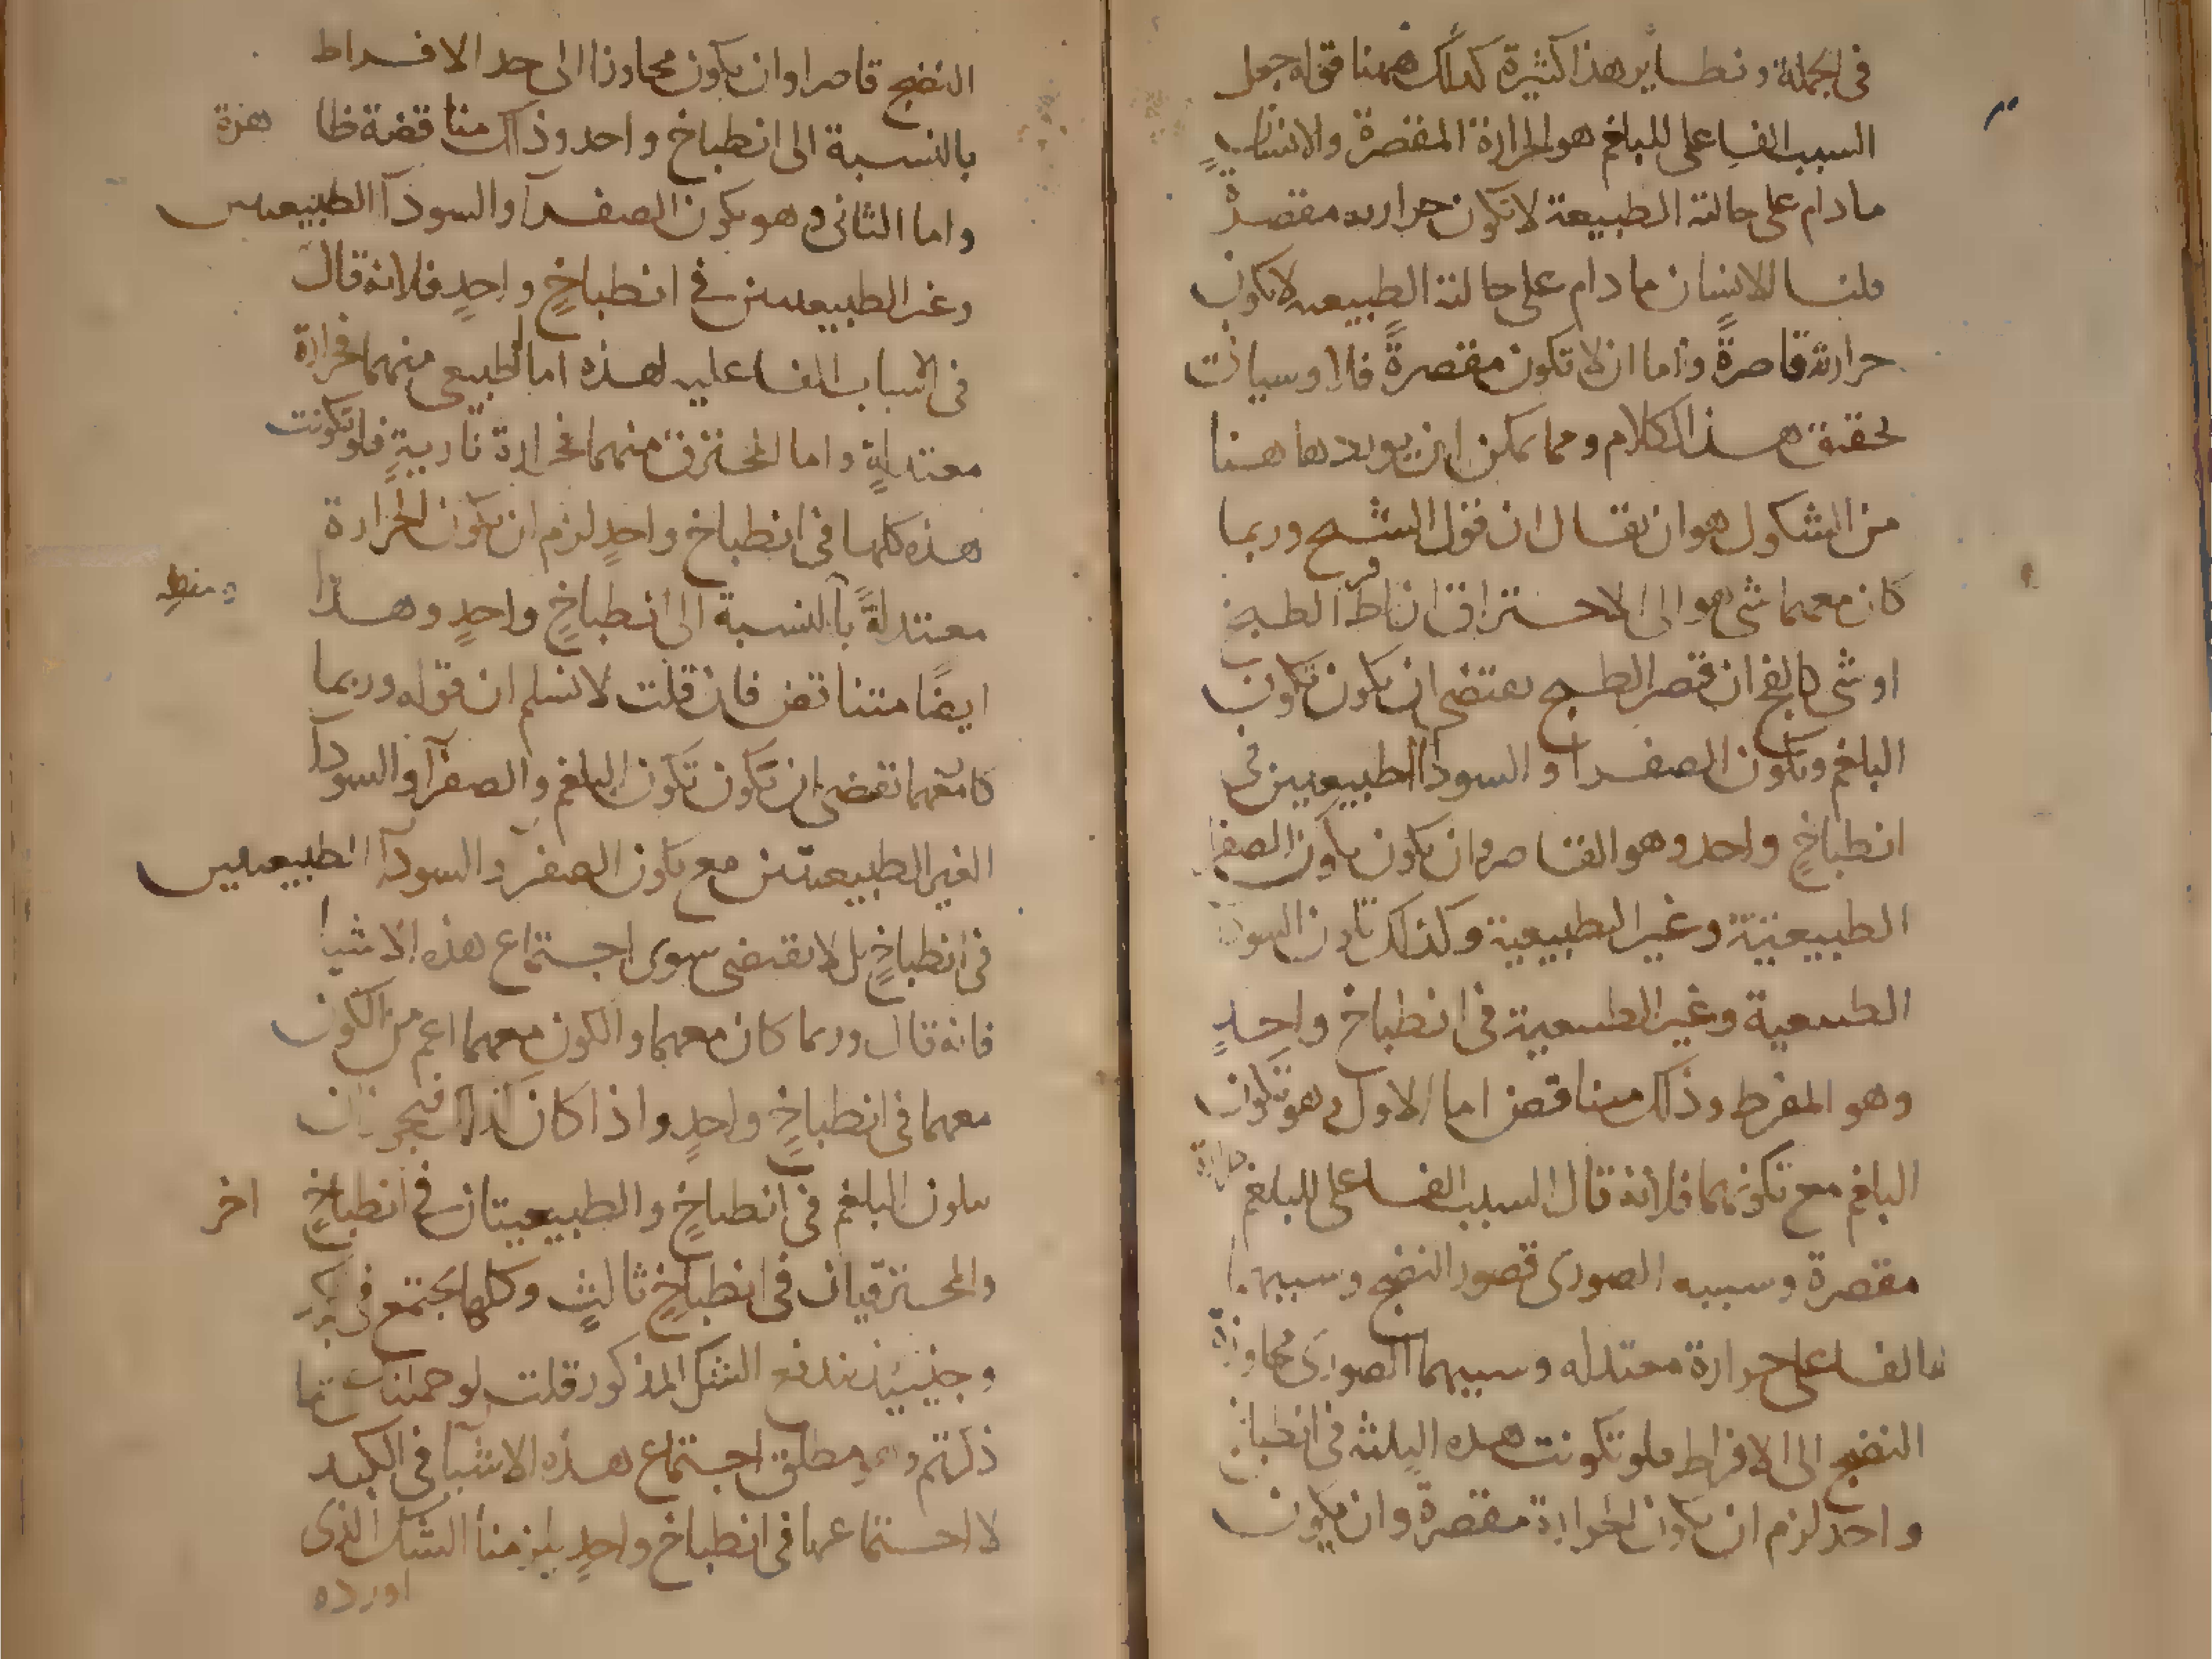 في الجملة ونظاير هذا كثيرة كذلك ههنا قوله جعل
السبب الفاعلي للبلغم هو الحرارة المقصرة والانسان
مادام على حالته الطبيعة لا تكون حرارته مقصرة
قلنا الانسان مادام على حالته الطبيعيه لا تكون
حرارته قاصرةً واما ان لا تكون مقصرةً فلا وسياتي
تحقيق هذا الكلام ومما يمكن ان يورد ها هنا
من الشكوك هو ان يقال ان قول الشيخ وربما
كان معهما شي هو الى الاحتراق ان افرط الطبخ
او شي كالفج ان قصر الطبخ يقتضي ان يكون تكون
البلغم وتكون الصفرا والسودا الطبيعيين في
انطباخٍ واحد وهو القاصر وان يكون تكون الصفرا
الطبيعية وغير الطبيعية وكذلك تكون السودا
الطبيعية وغير الطبيعية في انطباخ واحدٍ
وهو المفرط وذلك متناقض اما الاول وهو تكون
البلغم مع تكونهما فلانه قال السبب الفاعلي للبلغم حرارة
مقصرة وسببه الصوري قصور النضج وسببهما
الفاعلي حرارة معتدله وسببهما الصوري مجاوزة
النضج الى الافراط فلو تكونت هذه الثلثه في انطباخ
واحد لزم ان تكون الحرارة مقصرة وان يكون
النضج قاصرا وان يكون مجاوزا الى حد الافراط
بالنسبة الى انطباخ واحد وذلك مناقضة ظاهرة
واما الثاني وهو تكون الصفرآ والسودآ الطبيعيين
وغير الطبيعيين في انطباخٍ واحدٍ فلانه قال
في الاسباب الفاعليه لهذه اما الطبيعي منهما فحرارة
معتدلةٍ واما المحترق منهما فحرارة ناريةٍ فلو تكونت
هذه كلها في انطباخ واحدٍ لزم ان تكون الحرارة
معتدلةً بالنسبة الى انطباخٍ واحدٍ وهذا
ايضًا متناقض فان قلت لا نسلم ان قوله وربما
كان معهما تقتضي ان تكون تكون البلغم والصفرآ والسودآ
الغير الطبيعيتين مع تكون الصفرآ والسودآ الطبيعيين
في انطباخٍ بل لا يقتضي سوى اجتماع هذه الاشيا
فانه قال وربما كان معهما والكون معهما اعم من الكون
معهما في انطباخٍ واحدٍ واذا كان كذلك فيجوز ان
يكون البلغم في انطباخٍ والطبيعيتان في انطباخٍ اخر
والمحترقتان في انطباخٍ ثالثٍ وكلها يجتمع في
وحينيذ يندفع الشك المذكور قلت لو حملناه على ما
ذكرتم وهو مطلق اجتماع هذه الاشيا في الكبد
لا اجتماعها في انطباخ واحدٍ يلزمنا الشك الذي
اورده